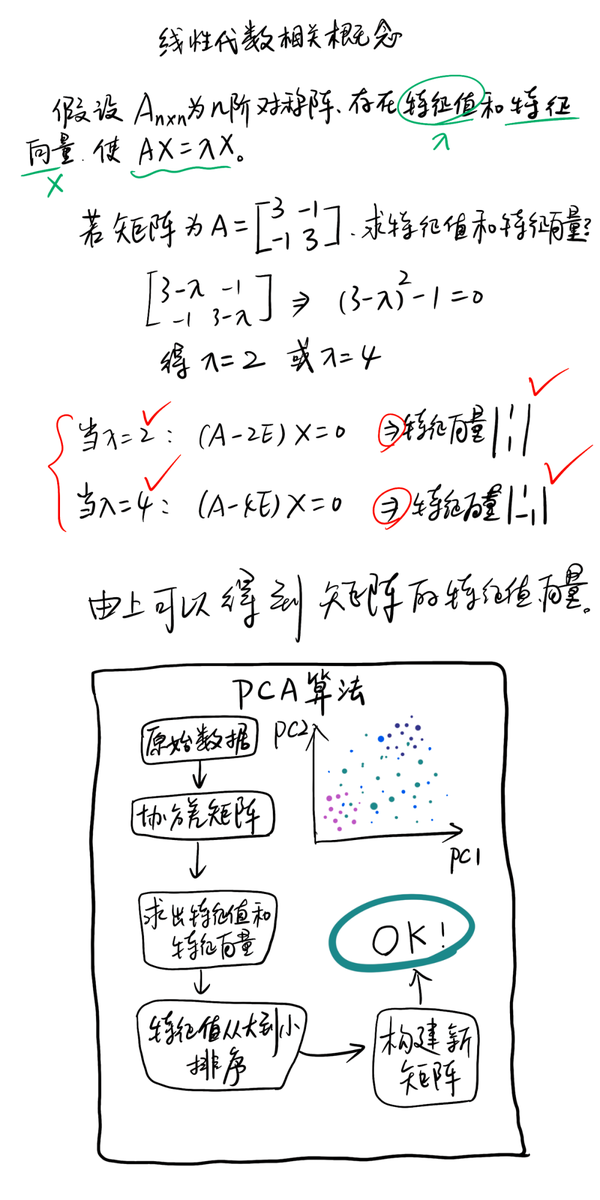 线性代数相关概念
假设 Anxn为n阶对称阵、存在特征值和特征
向量.使 AX=λX。
λ
X
若矩阵为A=[3 -1
-1 3].求特征值和特征向量?
[3-λ -1
-1 3-λ] ⇒ (3-λ)²-1=0
得 λ=2 或λ=4
当λ=2: (A-2E)X=0 ⇒特征向量|1
1|
当λ=4: (A-4E)X=0 ⇒特征向量|1
-1|
由上可以得到矩阵的特征值向量。
PCA算法
原始数据
协方差矩阵
求出特征值和
特征向量
特征值从大到小
排序
构建新
矩阵
OK!
PC2
PC1